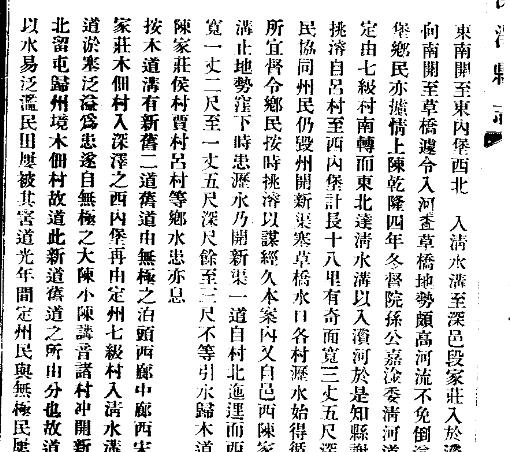 縣
東南開至東內堡西北　入清水溝至深邑段家莊入於
向南開至草橋邊令入河查草橋地勢頗高河流不免倒
堡鄉民亦攄情上陳乾隆四年冬督院孫公嘉淦委清河道
定由七級村南轉而東北達清水溝以入河於是知縣
挑濬自呂村至西內堡計長十八里有奇面寬三丈五尺深
民協同州民仍毀州開新渠塞草橋水口各村瀝水始得
所宜督令鄉民按時挑濬以謀經久本案內又自邑西陳家
溝止地勢窪下時患瀝水乃開新渠一道自村北迤逕而西
寬一丈二尺至一丈五尺深尺餘至三尺不等引水歸木道
陳家莊侯村賈村呂村等鄉水患亦息
按木道溝有新舊二道舊道由無極之治頭西廊中廊西宋
家莊木佃村入深澤之西內堡再由定州七級村入清水溝
道淤塞泛溢爲患遂自無極之大陳小陳講音諸村冲開新
北留屯歸州境木佃村故道此新道舊道之所由分也故道
以水易泛濫民田屢被其害道光年間定州民與無極民屢